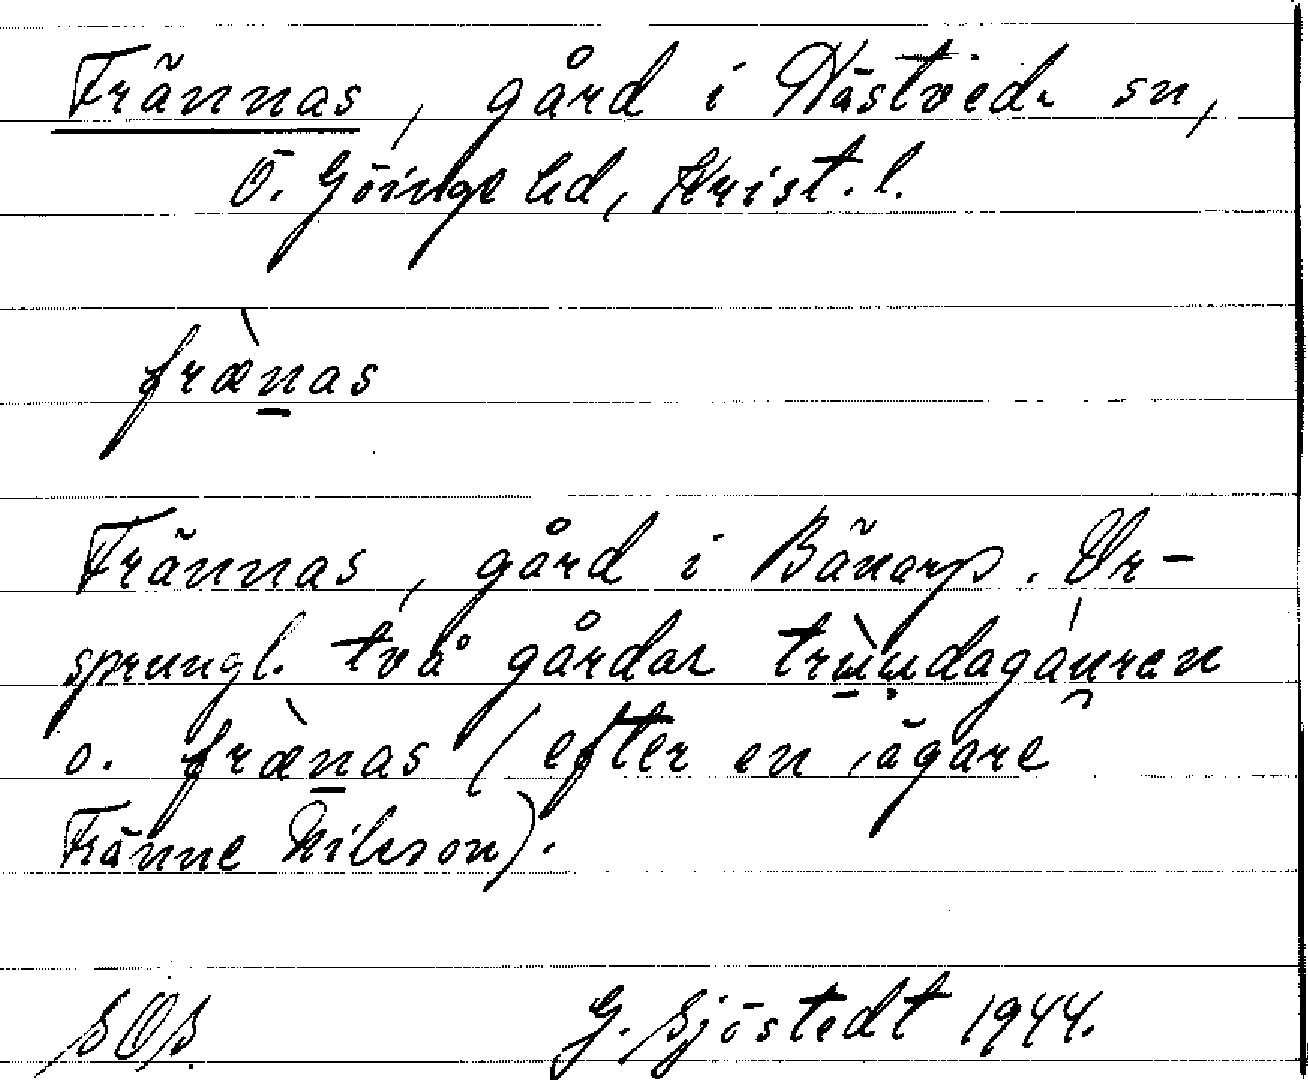 Frännas, gård i Hästveda sn,
Ö. Göinge hd, Krist. l.
fræ̀n̲as
Frännas, gård i Bänarp. Ur-
sprungl. två gårdar
o. fræ̀n̲as (efter en ägare
Fränne Nilsson).
SOS G. Sjöstedt 1944.